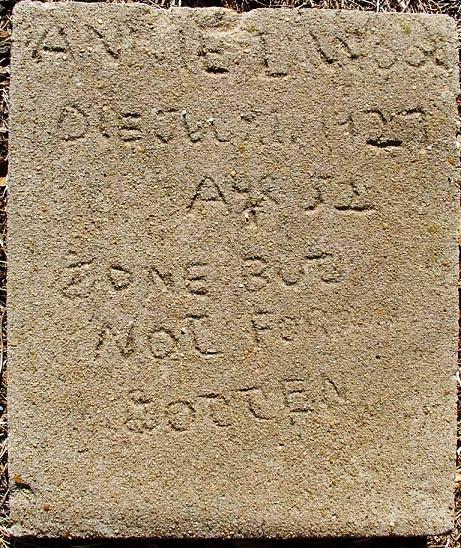 ANNIE L WOOD
DIE JULY 1 1927
AGE 52
GONE BUT
NOT FOR
GOTTEN